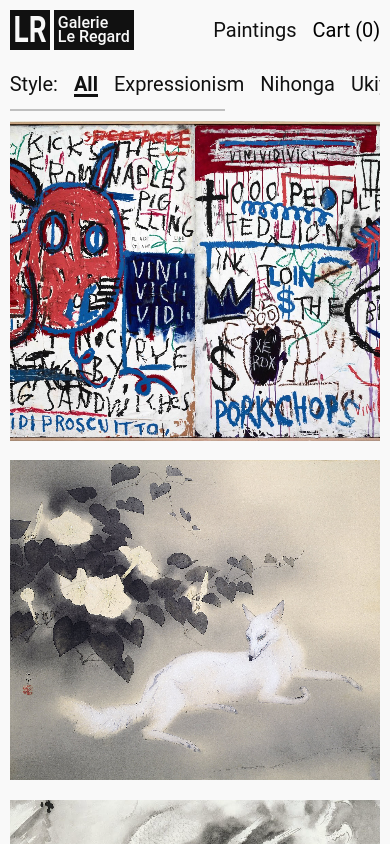 LR Galerie
Le Regard
Paintings Cart (0)
Style: All Expressionism Nihonga Uki
KICKS THE
FROM NAPLES
PIG
ELLING
VINI.
VICI.
VIDI.
RYE
SANDWICHES
IDI PROSCUITTO
VINIVIDIVICI
1000 PEOPLE
FED LIONS
INK
LOIN
$ THE B
XE
ROX
$
PORKCHOPS